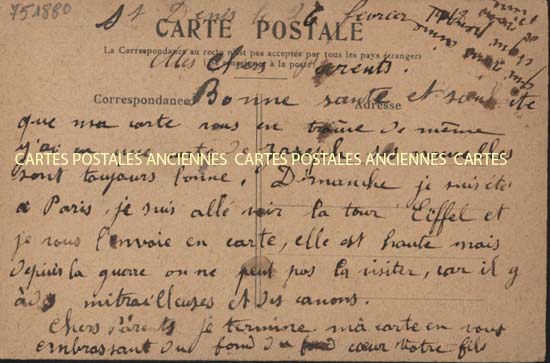 751880
St Denis le 26 fevrier
CARTE POSTALE
La Correspondance au recto n'est pas acceptée par tous les pays étrangers
(Se renseigner à la poste)
Mes Chers Parents.
Correspondance
Adresse
Bonne santé et souhaite
que ma carte vous en trouve de même
j'ai eu une carte de ses nouvelles
CARTES POSTALES ANCIENNES CARTES POSTALES ANCIENNES CARTES
sont toujours bonne. Dimanche je suis été
a Paris, je suis allé voir la tour Eiffel et
je vous l'envoie en carte, elle est haute mais
depuis la guerre on ne peut pas la visiter, car il y
à des mitrailleuses et des canons.
Chers Parents je termine ma carte en vous
embrassant du fond du cœur votre fils